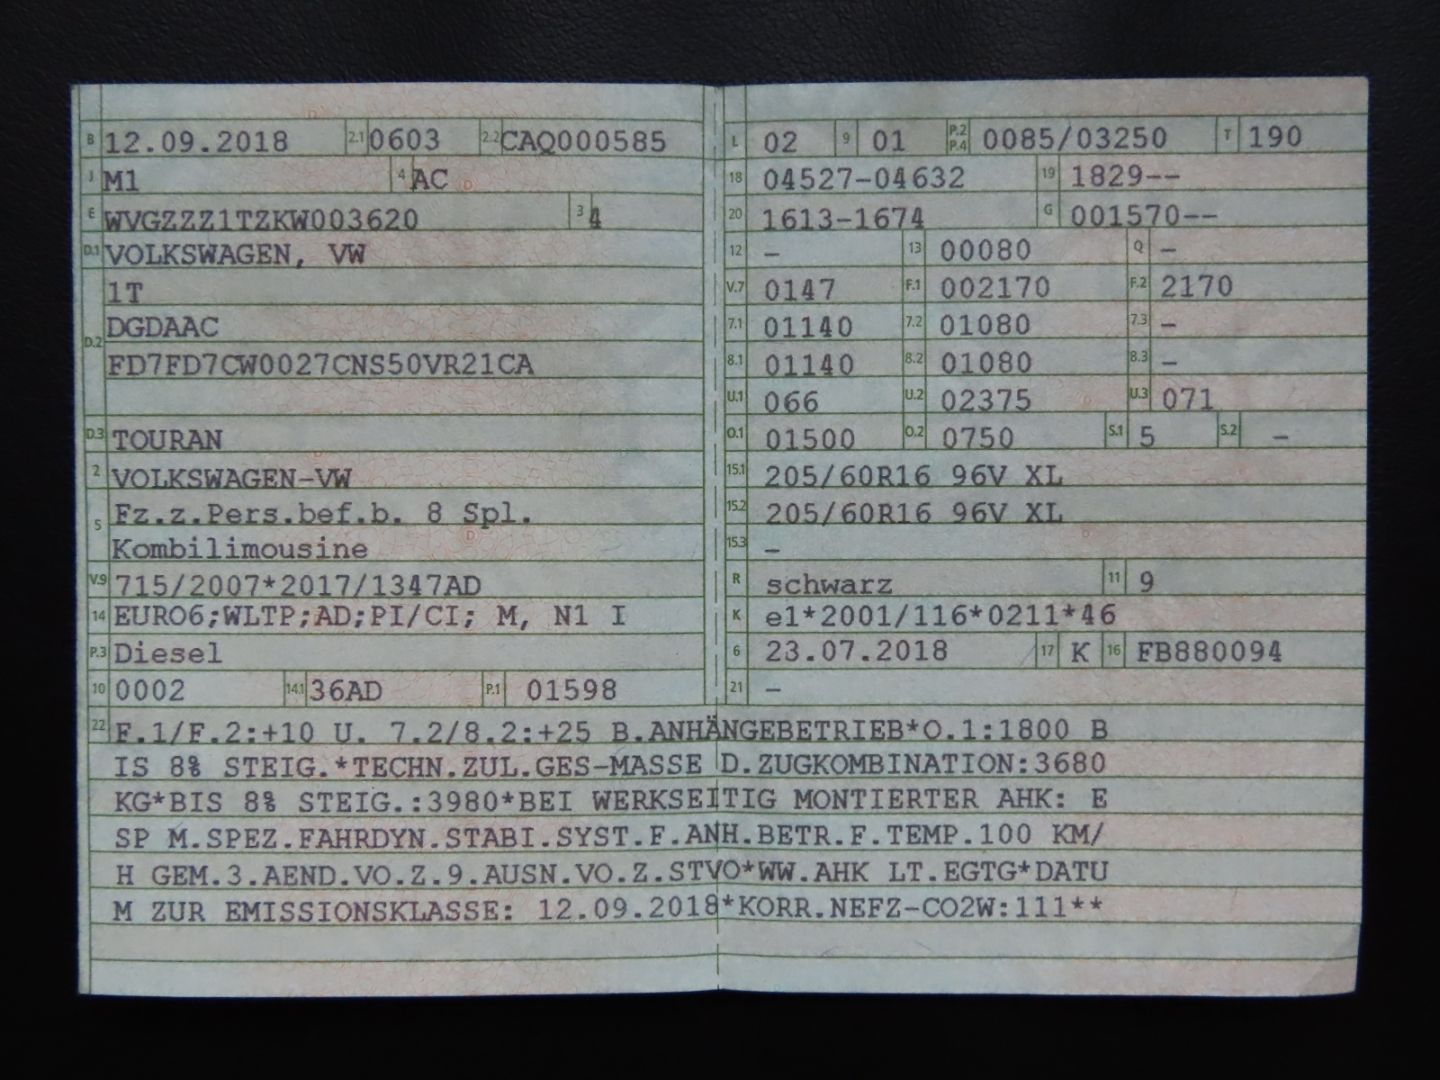 B 12.09.2018 2.1 0603 2.2 CAQ000585
J M1 4 AC
E WVGZZZ1TZKW003620 3 4
D.1 VOLKSWAGEN, VW
1T
D.2 DGDAAC
FD7FD7CW0027CNS50VR21CA
D.3 TOURAN
2 VOLKSWAGEN-VW
5 Fz.z.Pers.bef.b. 8 Spl.
Kombilimousine
V.9 715/2007*2017/1347AD
14 EURO6;WLTP;AD;PI/CI; M, N1 I
P.3 Diesel
10 0002 14.1 36AD P.1 01598
L 02 9 01 P.2 P.4 0085/03250 T 190
18 04527-04632 19 1829--
20 1613-1674 G 001570--
12 - 13 00080 Q -
V.7 0147 F.1 002170 F.2 2170
7.1 01140 7.2 01080 7.3 -
8.1 01140 8.2 01080 8.3 -
U.1 066 U.2 02375 U.3 071
O.1 01500 O.2 0750 S.1 5 S.2 -
15.1 205/60R16 96V XL
15.2 205/60R16 96V XL
15.3 -
R schwarz 11 9
K e1*2001/116*0211*46
6 23.07.2018 17 K 16 FB880094
21 -
22 F.1/F.2:+10 U. 7.2/8.2:+25 B.ANHÄNGEBETRIEB*O.1:1800 B
IS 8% STEIG.*TECHN.ZUL.GES-MASSE D.ZUGKOMBINATION:3680
KG*BIS 8% STEIG.:3980*BEI WERKSEITIG MONTIERTER AHK: E
SP M.SPEZ.FAHRDYN.STABI.SYST.F.ANH.BETR.F.TEMP.100 KM/
H GEM.3.AEND.VO.Z.9.AUSN.VO.Z.STVO*WW.AHK LT.EGTG*DATU
M ZUR EMISSIONSKLASSE: 12.09.2018*KORR.NEFZ-CO2W:111**